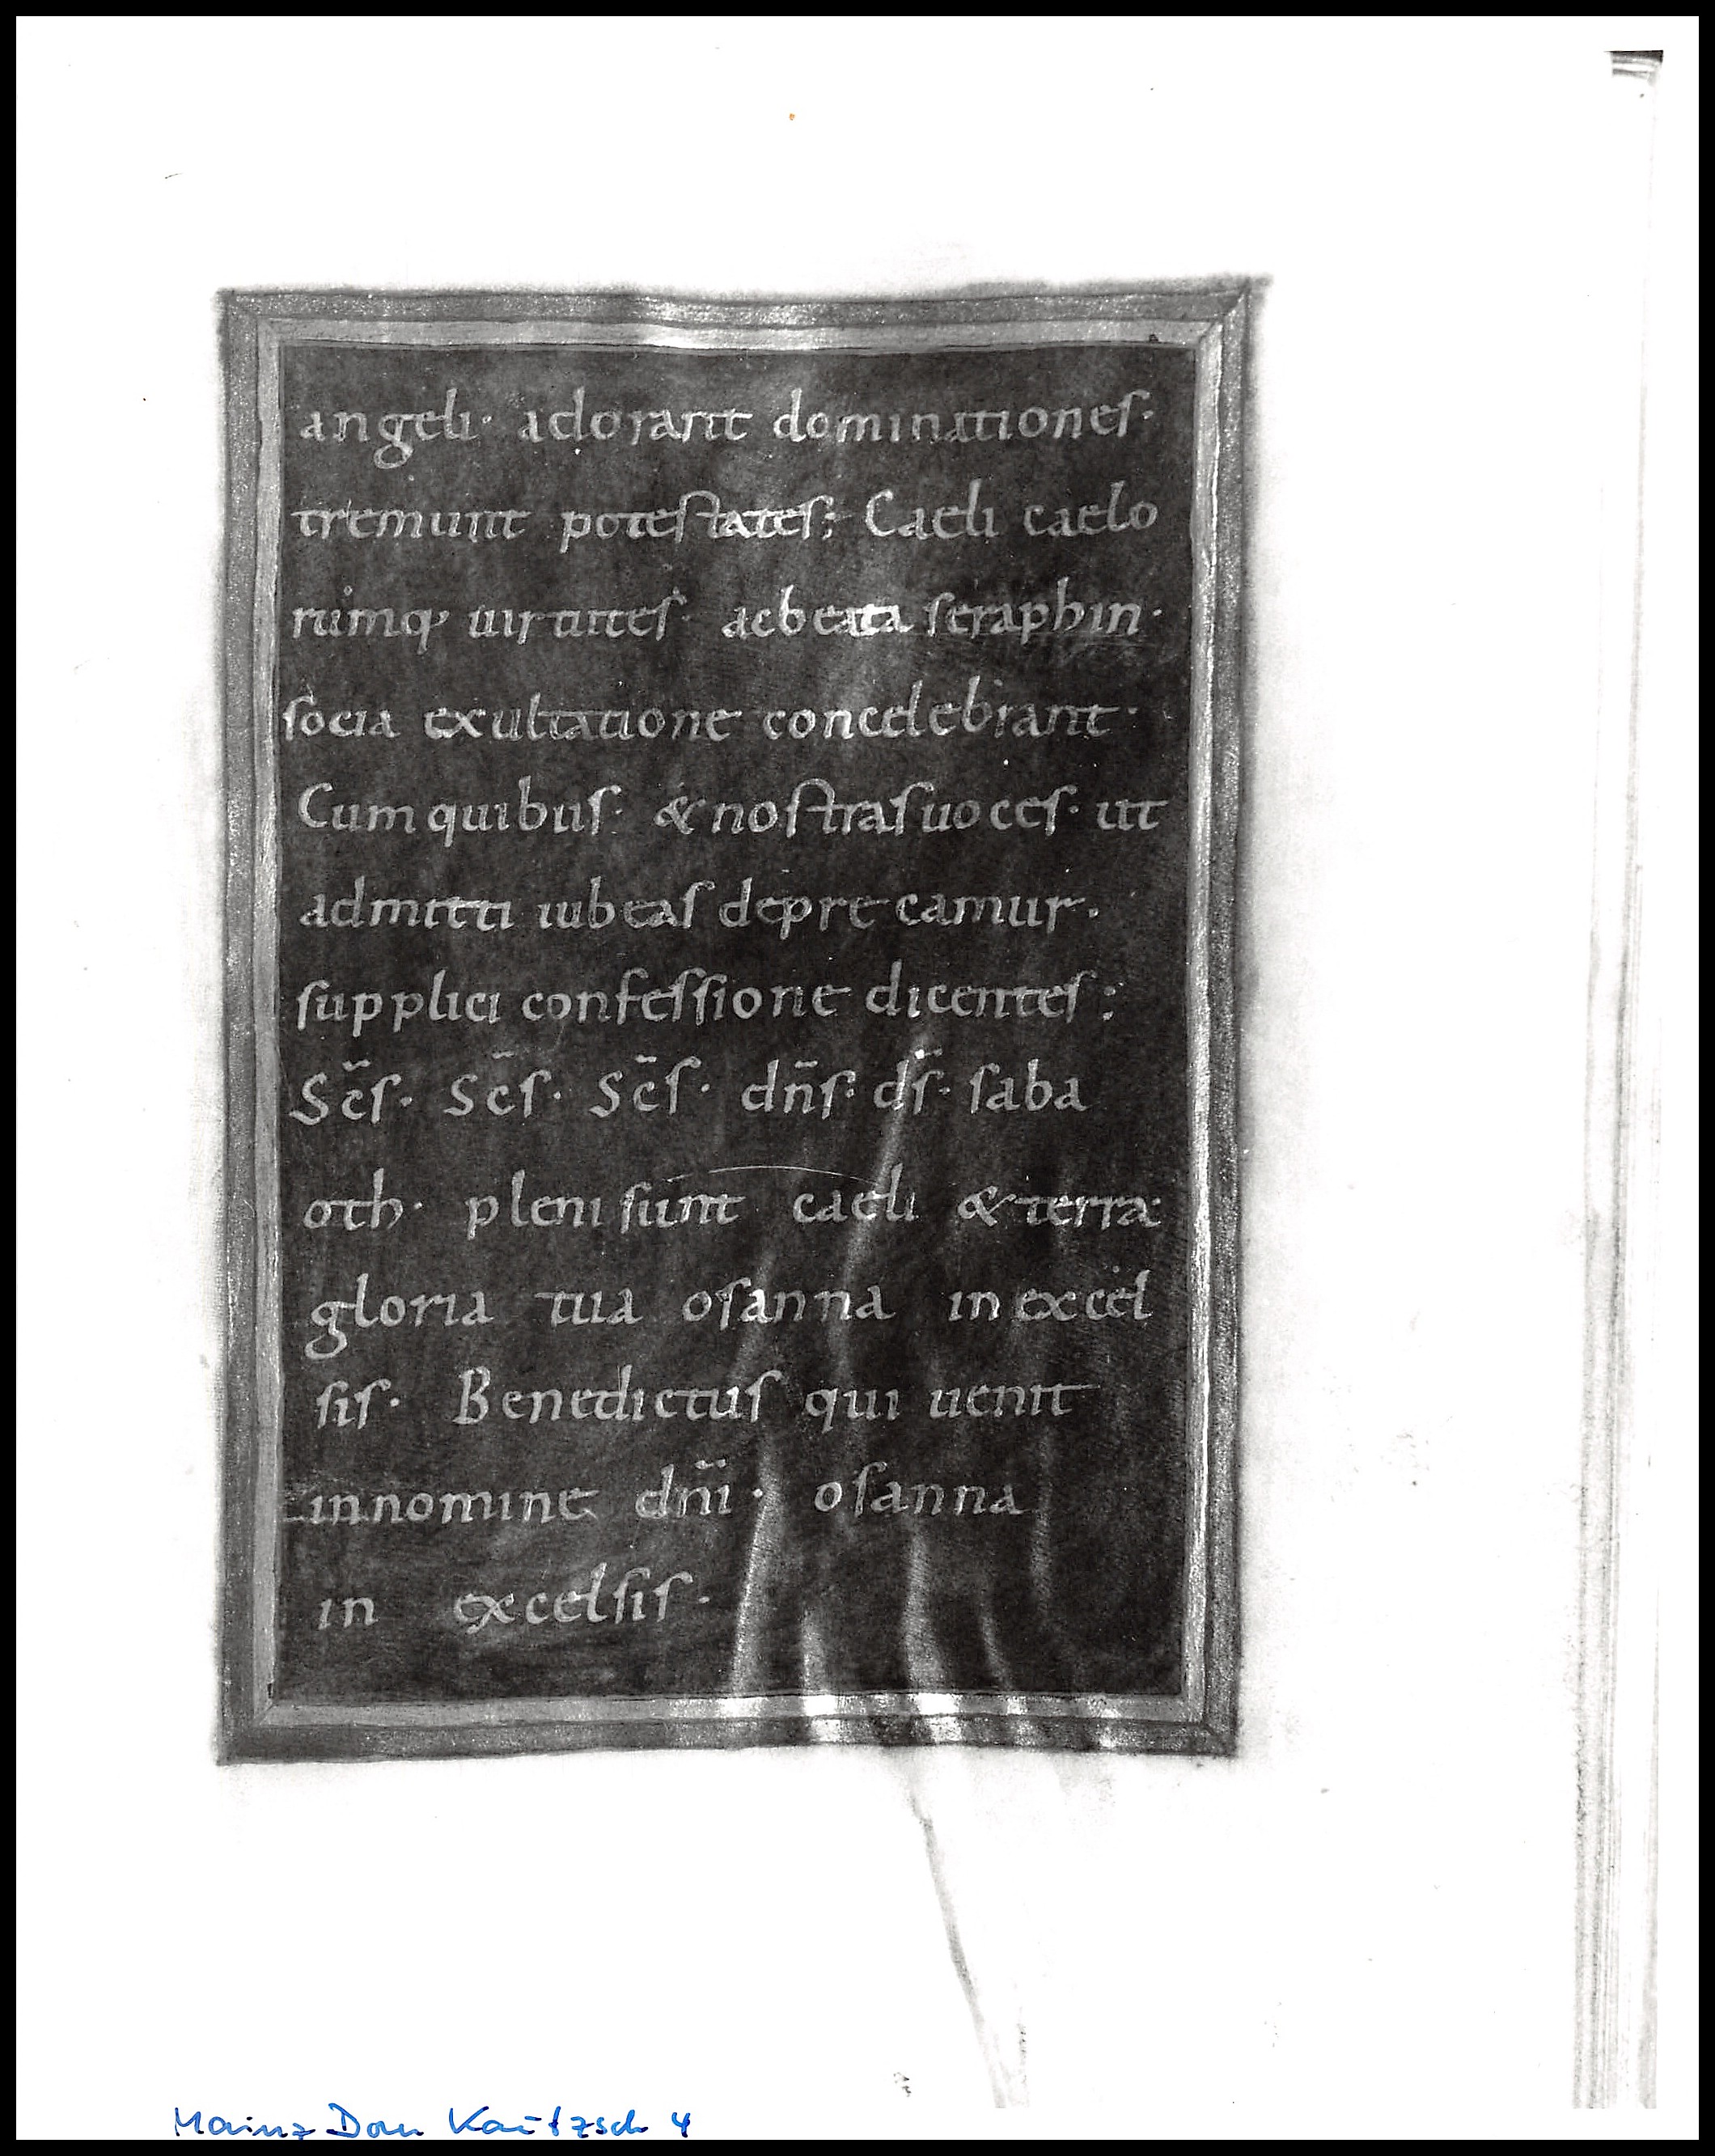 angeli· adorant dominationeſ·
tremunt poteſtateſ; Caeli caelo
rumq; uirtuteſ· acbeata ſeraphin·
ſocia exultatione concelebrant·
Cum quibuſ· & noſtraſ uoceſ· ut
admitti iubeaſ deprecamur·
ſupplici confeſſione dicenteſ:
Sc̄ſ· Sc̄ſ· Sc̄ſ· dn̄ſ· dſ̄· ſaba
oth· pleni ſunt caeli & terra·
gloria tua oſanna in excel
ſiſ· Benedictuſ qui uenit
innomine dn̄i· oſanna
in excelſiſ·
Mainz Dom Kautzsch 4